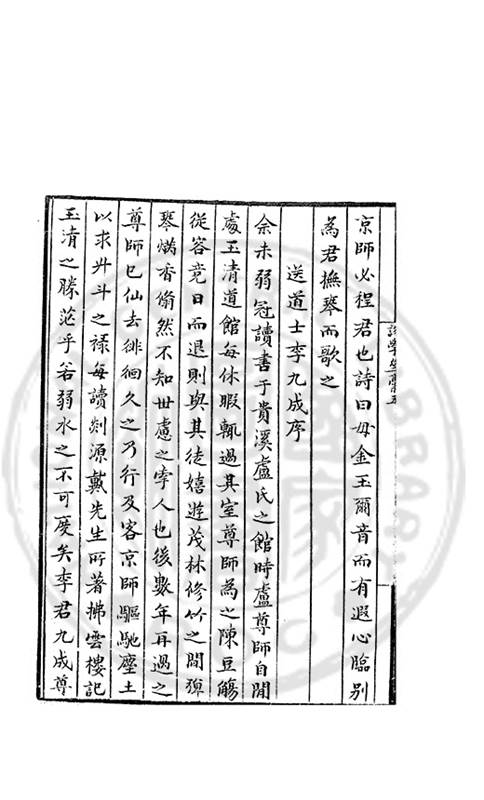 京師必程君也詩曰毋金玉爾音而有遐心臨別
為君撫琴而歌之
送道士李九成序
余未弱冠讀書于貴溪盧氏之館時盧尊師自閒
處玉清道館每休暇輒過其室尊師為之陳豆觴
從容竟日而退則與其徒嬉遊茂林修竹之間彈
琴爇香翛然不知世慮之孛人也後數年再過之
尊師已仙去徘徊久之乃行及客京師驅馳塵土
以求升斗之祿每讀剡源戴先生所著拂雲樓記
玉清之勝茫乎若弱水之不可度矣李君九成尊